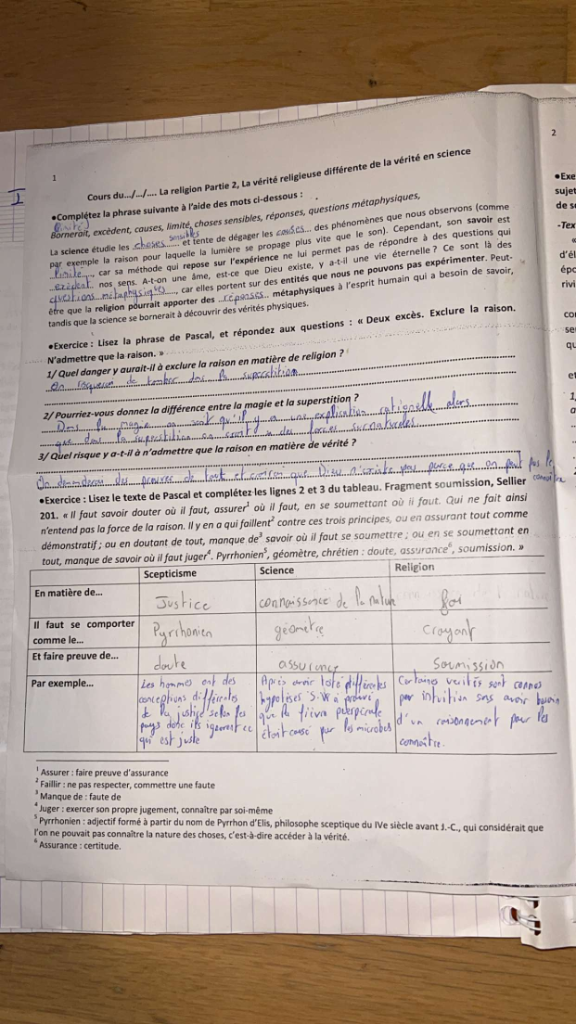 1
Cours du.../.../.... La religion Partie 2, La vérité religieuse différente de la vérité en science
•Complétez la phrase suivante à l'aide des mots ci-dessous :
Bornerait, excèdent, causes, limité, choses sensibles, réponses, questions métaphysiques,
La science étudie les choses sensibles et tente de dégager les causes... des phénomènes que nous observons (comme
par exemple la raison pour laquelle la lumière se propage plus vite que le son). Cependant, son savoir est
limité..., car sa méthode qui repose sur l'expérience ne lui permet pas de répondre à des questions qui
excèdent nos sens. A-t-on une âme, est-ce que Dieu existe, y a-t-il une vie éternelle ? Ce sont là des
questions métaphysiques..., car elles portent sur des entités que nous ne pouvons pas expérimenter. Peut-
être que la religion pourrait apporter des ..réponses.. métaphysiques à l'esprit humain qui a besoin de savoir,
tandis que la science se bornerait à découvrir des vérités physiques.
•Exercice : Lisez la phrase de Pascal, et répondez aux questions : « Deux excès. Exclure la raison.
N'admettre que la raison. »
1/ Quel danger y aurait-il à exclure la raison en matière de religion ?
On risquerait de tomber dans la superstition
2/ Pourriez-vous donner la différence entre la magie et la superstition ?
Dans la magie on sait qu'il y a une explication rationelle alors
que dans la superstition on croit à des forces surnaturelles
3/ Quel risque y a-t-il à n'admettre que la raison en matière de vérité ?
On demanderai des preuves de tout et croiron que Dieu n'existe pas parce que on peut pas le
connaître
•Exercice : Lisez le texte de Pascal et complétez les lignes 2 et 3 du tableau. Fragment soumission, Sellier
201. « Il faut savoir douter où il faut, assurer¹ où il faut, en se soumettant où il faut. Qui ne fait ainsi
n'entend pas la force de la raison. Il y en a qui faillent² contre ces trois principes, ou en assurant tout comme
démonstratif ; ou en doutant de tout, manque de³ savoir où il faut se soumettre ; ou en se soumettant en
tout, manque de savoir où il faut juger⁴. Pyrrhonien⁵, géomètre, chrétien : doute, assurance⁶, soumission. »
Scepticisme Science Religion
En matière de... Justice connaissance de la nature foi
Il faut se comporter
comme le... Pyrrhonien géomètre Croyant
Et faire preuve de... doute assurance Soumission
Par exemple... Les hommes ont des
conceptions différentes
de la justice selon les
pays donc ils ignorent ce
qui est juste
Après avoir testé différentes
hypotèses S.W à prouvé
que la fièvre puerpérale
était causé par les microbes
Certaines verités sont connues
par intuition sans avoir besoin
d'un raisonnement pour les
connaître.
¹ Assurer : faire preuve d'assurance
² Faillir : ne pas respecter, commettre une faute
³ Manque de : faute de
⁴ Juger : exercer son propre jugement, connaître par soi-même
⁵ Pyrrhonien : adjectif formé à partir du nom de Pyrrhon d'Elis, philosophe sceptique du IVe siècle avant J.-C., qui considérait que
l'on ne pouvait pas connaître la nature des choses, c'est-à-dire accéder à la vérité.
⁶ Assurance : certitude.
2
•Exe
sujet
de s
-Tex
«
d'él
épo
rivi
co
se
qu
et
1,
a